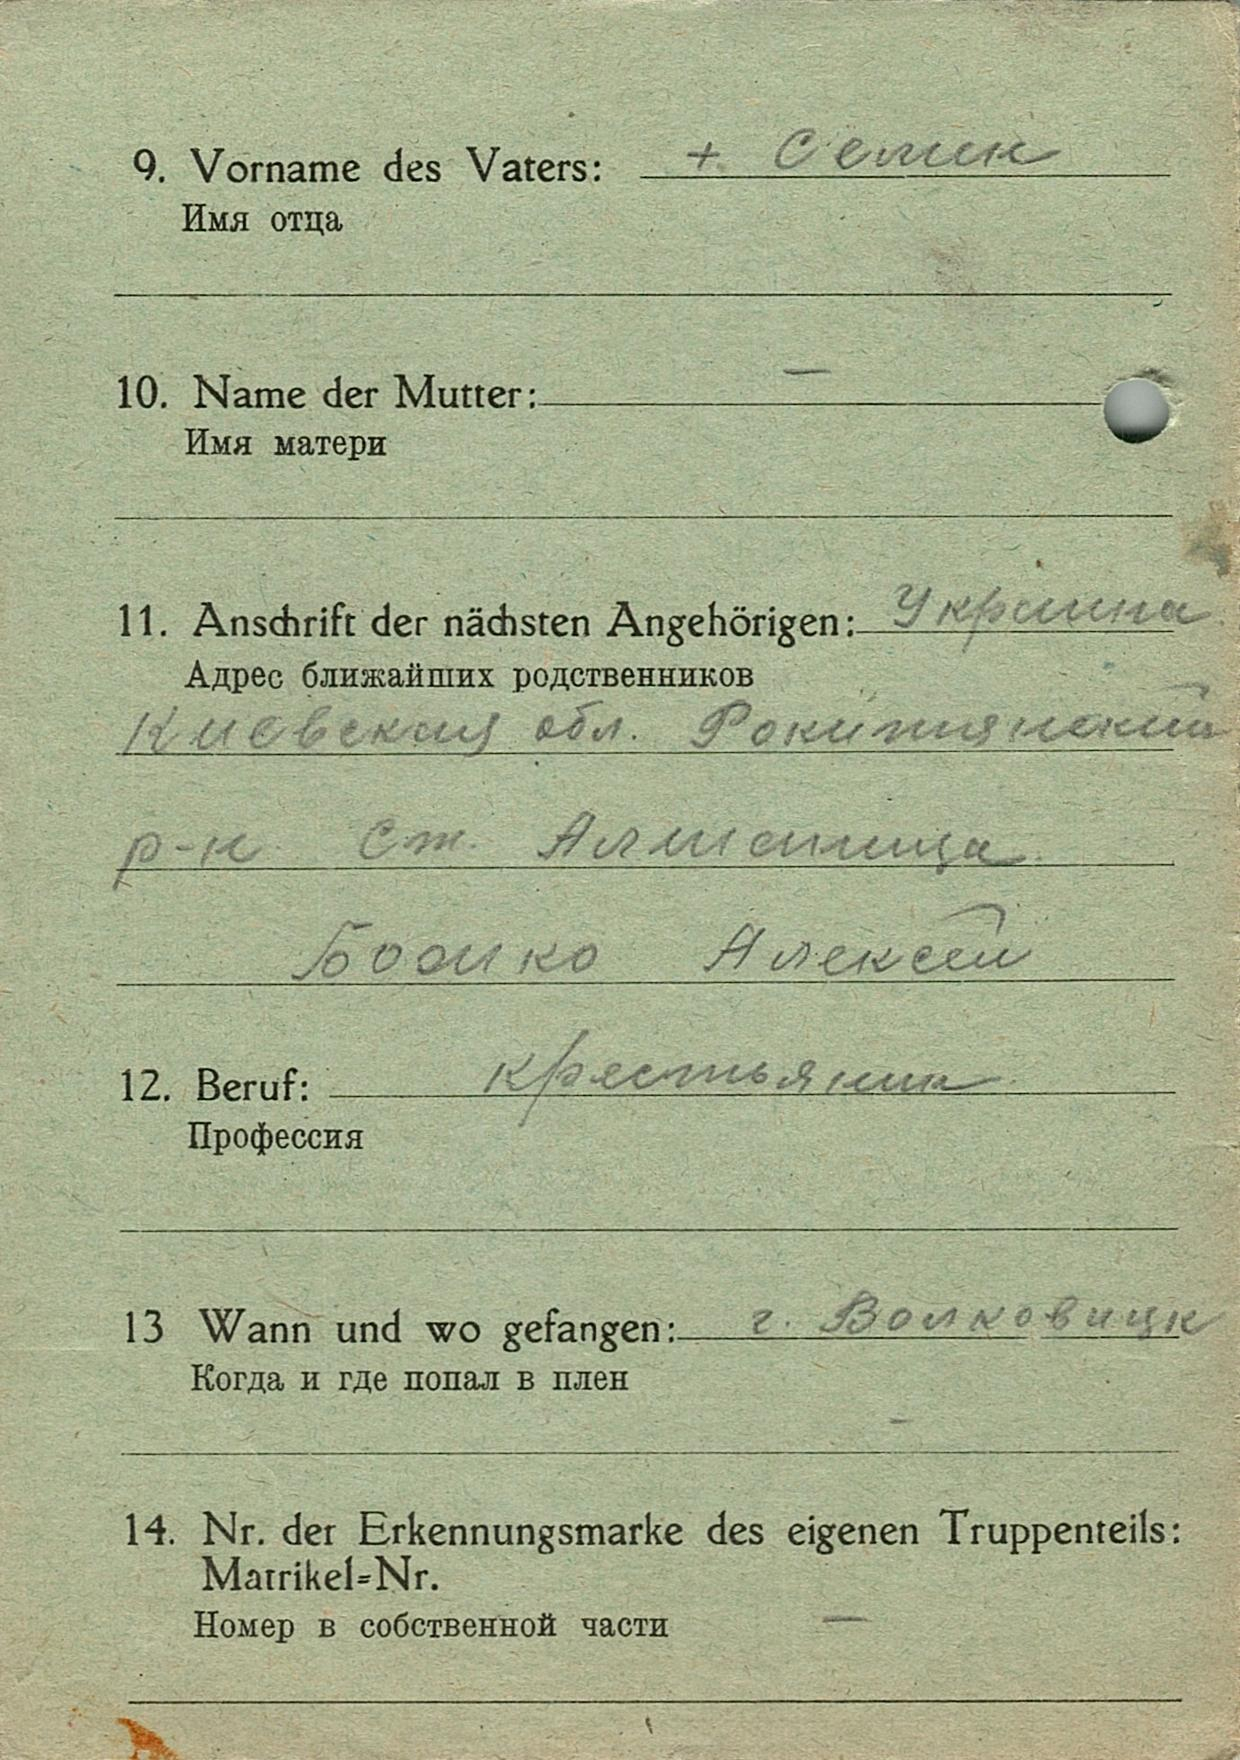 9. Vorname des Vaters: + Семен
Имя отца
10. Name der Mutter: —
Имя матери
11. Anschrift der nächsten Angehörigen: Украина
Адрес ближайших родственников
Киевская обл. Рокитянский
р-н Ст.
Алексей
12. Beruf: крестьянин
Профессия
13 Wann und wo gefangen: г. Волковицк
Когда и где попал в плен
14. Nr. der Erkennungsmarke des eigenen Truppenteils:
Matrikel=Nr.
Номер в собственной части —